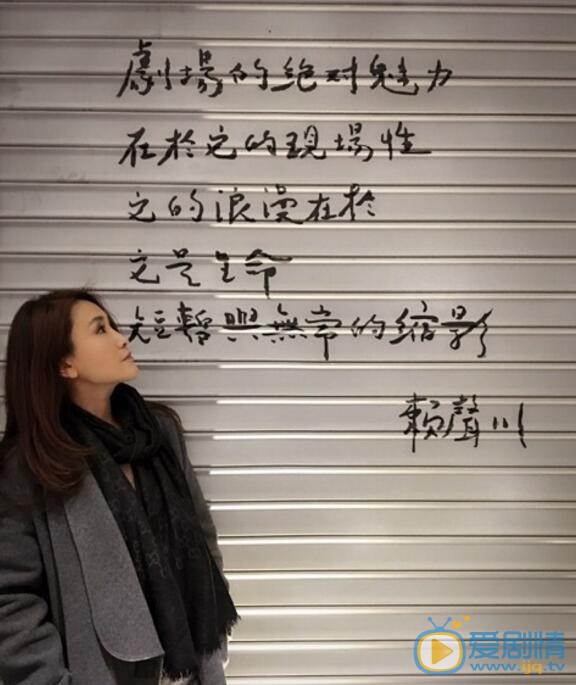 劇場的绝对魅力
在於它的現場性
它的浪漫在於
它是生命
短暫與無常的縮影
賴聲川
爱剧情
www.ijq.tv